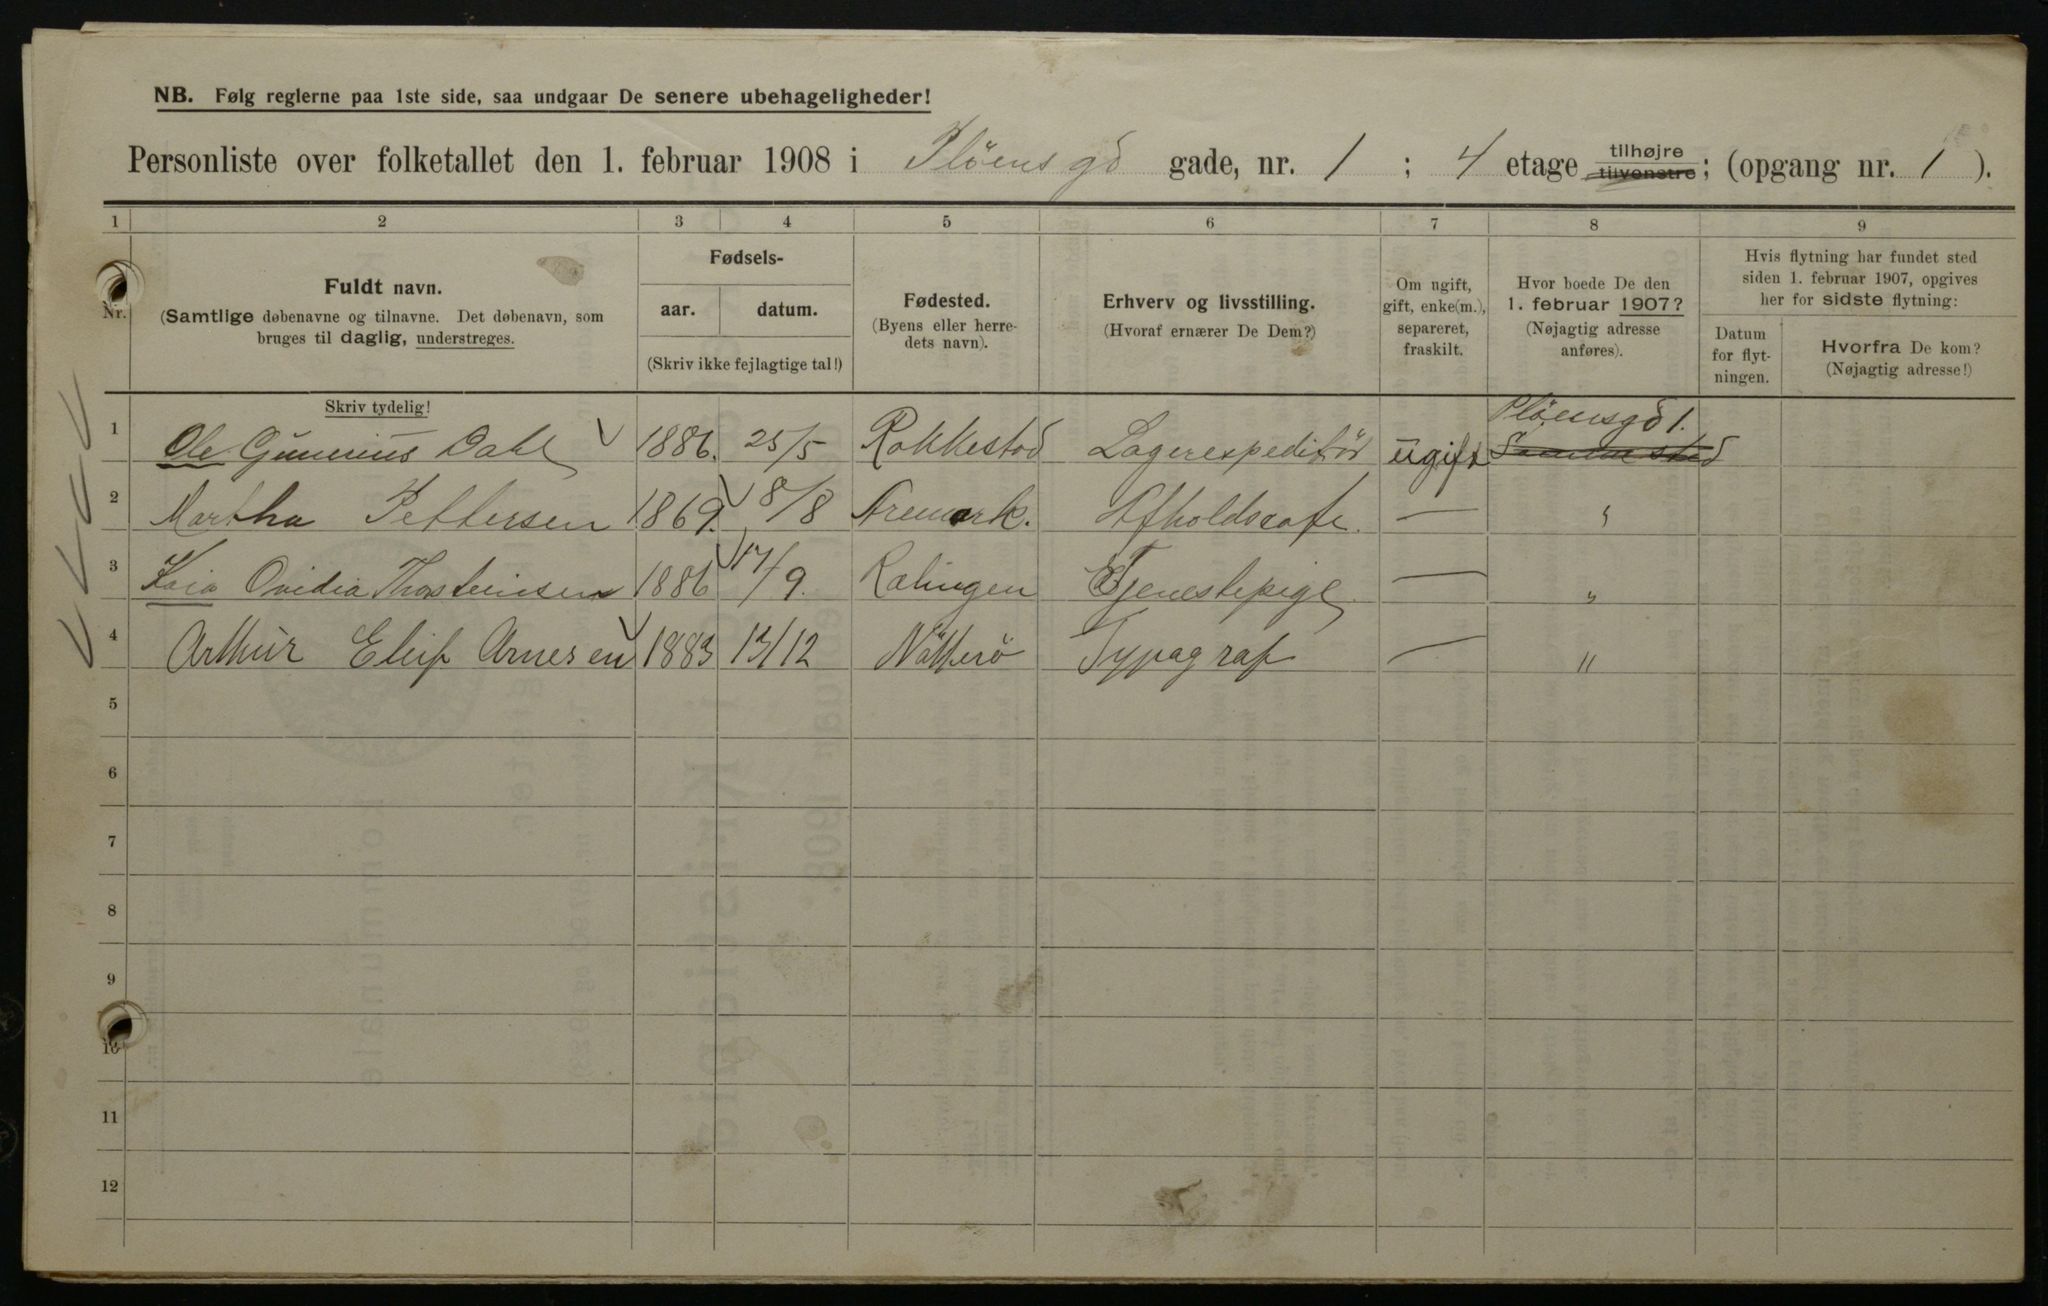 NB. Følg reglerne paa 1ste side, saa undgaar De senere ubehageligheder!
Personliste over folketallet den 1. februar 1908 i Pløensgd gade, nr. 1 ; 4 etage tilhøjre tilvenstre ; (opgang nr. 1 ).
1 2 3 4 5 6 7 8 9
Nr.
Fuldt navn.
(Samtlige døbenavne og tilnavne. Det døbenavn, som
bruges til daglig, understreges.
Skriv tydelig!
Fødsels-
aar. datum.
(Skriv ikke fejlagtige tal!)
Fødested.
(Byens eller herre-
dets navn).
Erhverv og livsstilling.
(Hvoraf ernærer De Dem?)
Om ugift,
gift, enke(m.),
separeret,
fraskilt.
Hvor boede De den
1. februar 1907?
(Nøjagtig adresse
anføres).
Hvis flytning har fundet sted
siden 1. februar 1907, opgives
her for sidste flytning:
Datum
for flyt-
ningen.
Hvorfra De kom?
(Nøjagtig adresse!)
Pløensgd 1.
1 Ole Gunerius Dahl 1886. 25/5 Rakkestad Lagerexpeditør ugift Samme sted
2 Martha Pettersen 1869. 18/8 Aremark. Afholdscafe. — "
3 Kaia Ovidia Thosteinsen 1886 17/9. Rælingen Tjenestepige — "
4 Arthur Eleif Arnesen 1883 13/12 Nötterö Typagraf — "
5
6
7
8
9
10
11
12